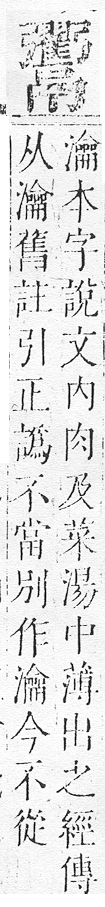 瀹本字說文内肉及菜湯中薄出之經傳
从瀹舊註引正譌不當別作瀹今不從